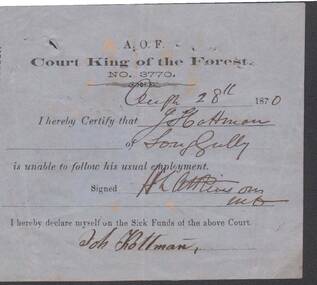 A. O. F.
Court King of the Forest.
NO. 3770.
28th 1870
I hereby Certify that J Hattman
of Long Gully
is unable to follow his usual employment.
Signed H L Atkinson
M D
I hereby declare myself on the Sick Funds of the above Court.
Joh Hottman,